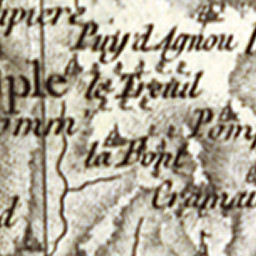 upiere
Puy d'Agnou
ple le Treuil
omm
Pomp
la Font
Cramau
d